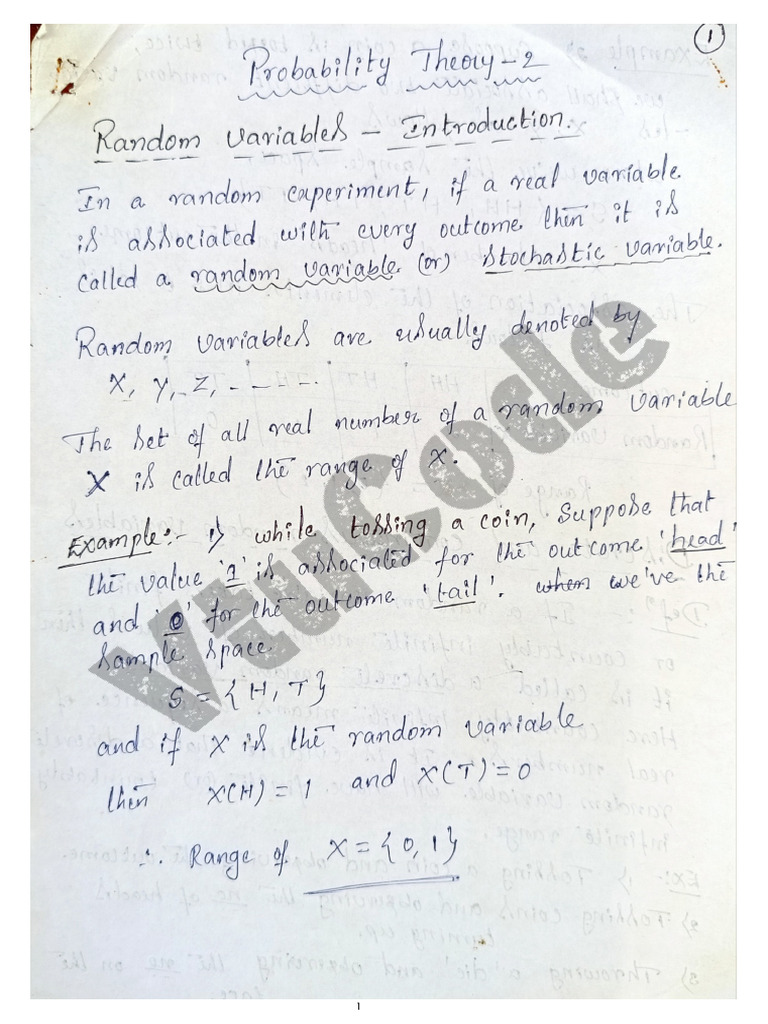 1
Probability Theory-2
Random Variables - Introduction.
In a random experiment, if a real variable
is associated with every outcome then it is
called a random variable (or) stochastic variable.
Random variables are usually denoted by
X, Y, Z, - - - -.
The set of all real number of a random variable
X is called the range of X.
Example:- 1) while tossing a coin, suppose that
the value '1' is associated for the outcome 'head'
and '0' for the outcome 'tail'. when we've the
sample space
S = {H, T}
and if X is the random variable
then X(H) = 1 and X(T) = 0
∴ Range of X = {0, 1}
VTUCode
1